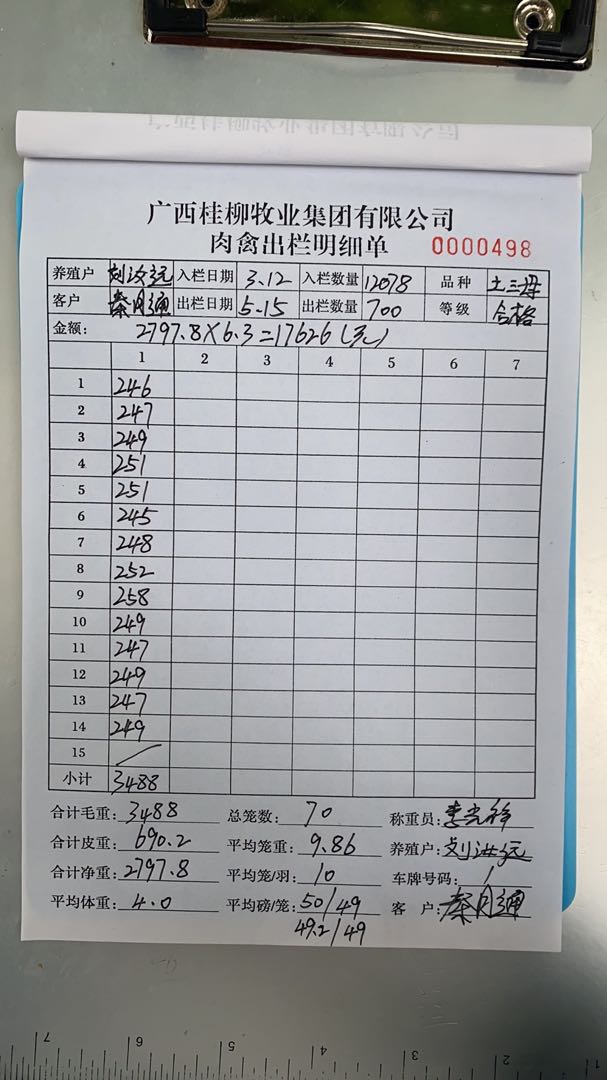 广西桂柳牧业集团有限公司
肉禽出栏明细单 0000498
养殖户 刘汝元 入栏日期 3.12 入栏数量 12078 品种 土三号
客户 秦月通 出栏日期 5.15 出栏数量 700 等级 合格
金额: 2797.8×6.3=17626(元)
1 2 3 4 5 6 7
1 246
2 247
3 249
4 251
5 251
6 245
7 248
8 252
9 258
10 249
11 247
12 249
13 247
14 249
15 /
小计 3488
合计毛重: 3488 总笼数: 70 称重员:
合计皮重: 690.2 平均笼重: 9.86 养殖户:
合计净重: 2797.8 平均笼/羽: 10 车牌号码: /
平均体重: 4.0 平均磅/笼: 50/49 客 户: 秦月通
49.2/49
7 6 5 4 3 2 1